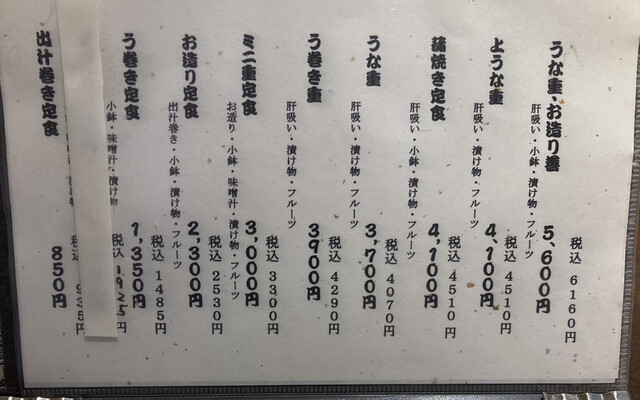 うな重、お造り善
肝吸い・小鉢・漬け物・フルーツ
5,600円
税込 6160円
ような重
肝吸い・漬け物・フルーツ
4,100円
税込 4510円
蒲焼き定食
肝吸い・小鉢・漬け物・フルーツ
4,100円
税込 4510円
うな重
肝吸い・漬け物・フルーツ
3,700円
税込 4070円
う巻き重
肝吸い・漬け物・フルーツ
3900円
税込 4290円
ミニ重定食
お造り・小鉢・味噌汁・漬け物・フルーツ
3,000円
税込 3300円
お造り定食
出汁巻き・小鉢・漬け物・フルーツ
2,300円
税込 2530円
う巻き定食
小鉢・味噌汁・漬け物
1,350円
税込 1485円
税込 1925円
出汁巻き定食
850円
税込 935円